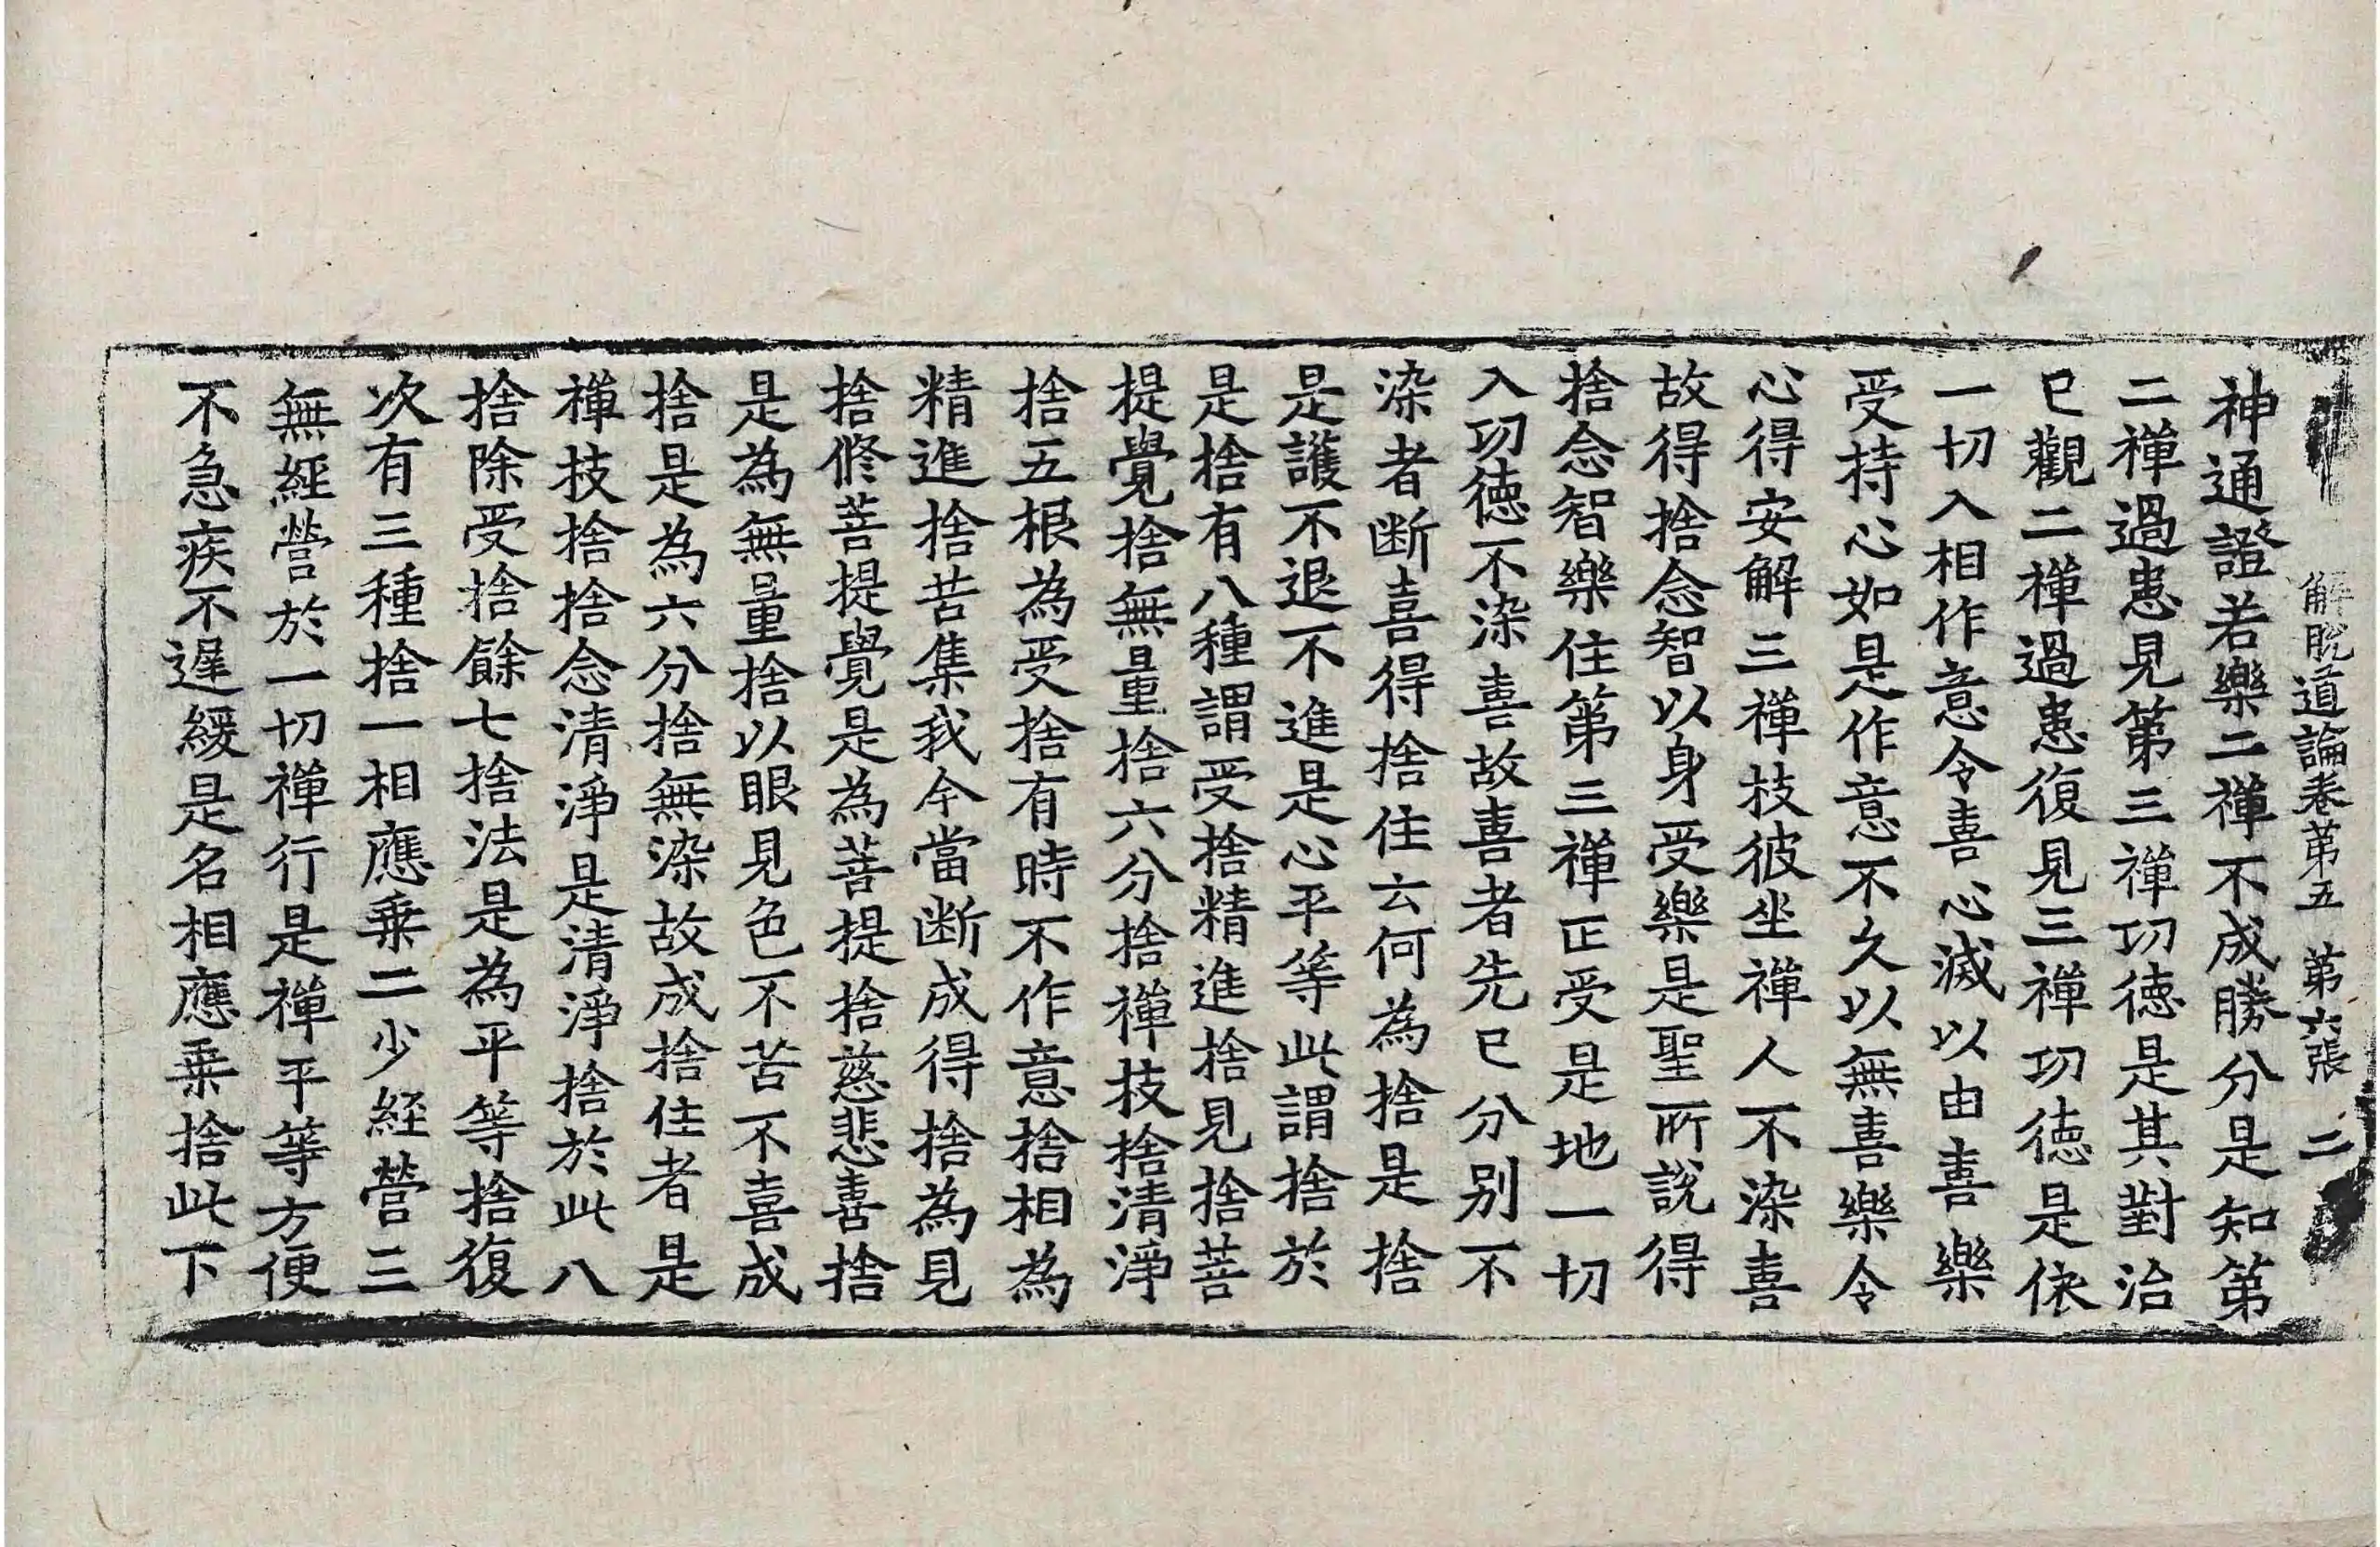 解脫道論卷第五 第六張 二
神通證若樂二禪不成勝分是知第
二禪過患見第三禪功德是其對治
已觀二禪過患復見三禪功德是依
一切入相作意令喜心滅以由喜樂
受持心如是作意不久以無喜樂令
心得安解三禪技彼坐禪人不染喜
故得捨念智以身受樂是聖所說得
捨念智樂住第三禪正受是地一切
入功德不染喜故喜者先已分別不
染者斷喜得捨住云何為捨是捨
是護不退不進是心平等此謂捨於
是捨有八種謂受捨精進捨見捨菩
提覺捨無量捨六分捨禪技捨清淨
捨五根為受捨有時不作意捨相為
精進捨苦集我今當斷成得捨為見
捨修菩提覺是為菩提捨慈悲喜捨
是為無量捨以眼見色不苦不喜成
捨是為六分捨無染故成捨住者是
禪技捨捨念清淨是清淨捨於此八
捨除受捨餘七捨法是為平等捨復
次有三種捨一相應乗二少經營三
無經營於一切禪行是禪平等方便
不急疾不遲緩是名相應乗捨此下